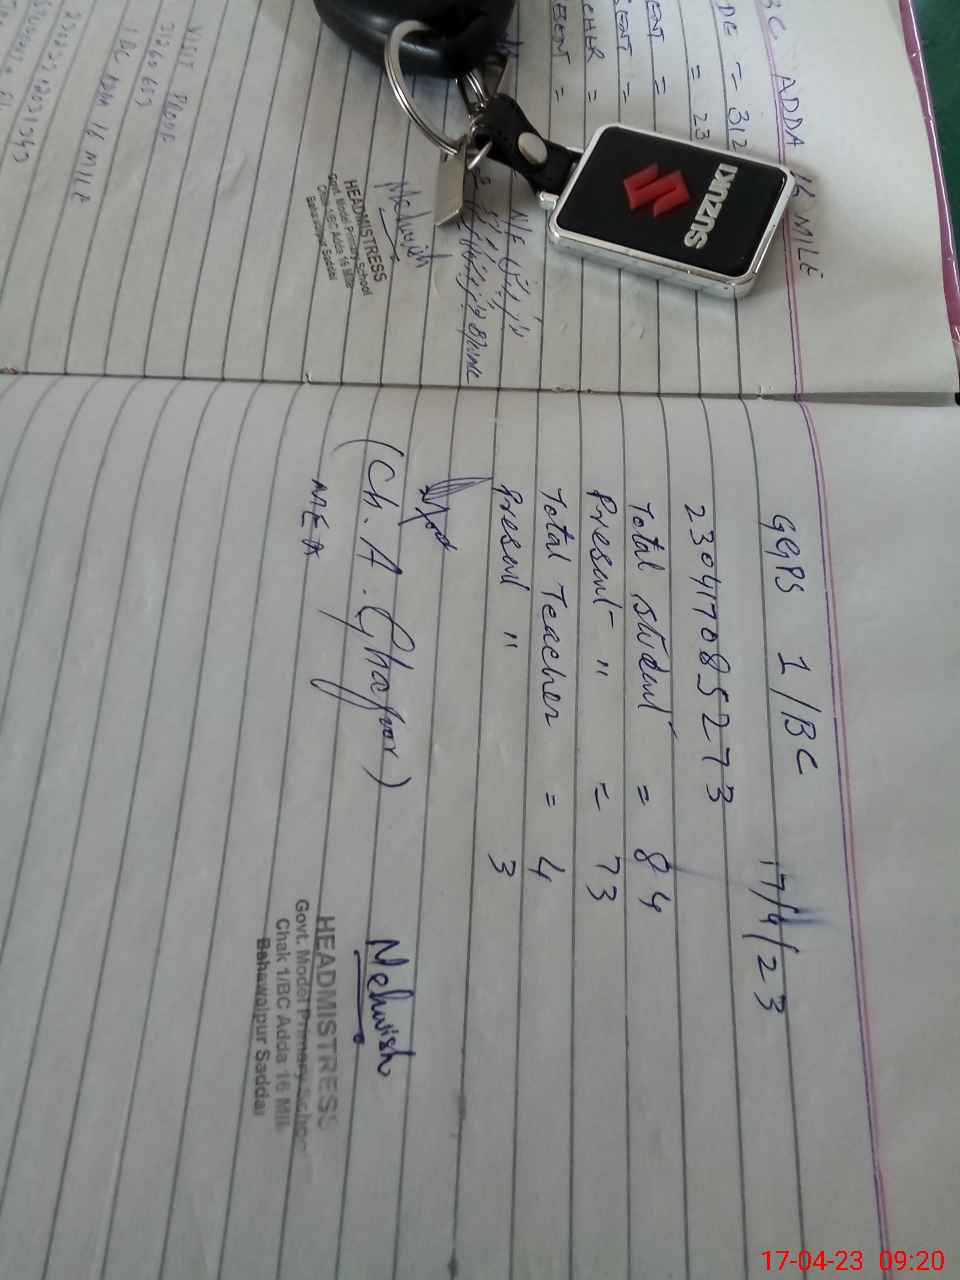 BC ADDA 16 MILE
= 312
= 23
N/E
Mehwish
HEADMISTRESS
Govt. Model Primary School
Chak 1/BC Adda 16 Mile
Bahawalpur Saddar
VISIT PROOF
31260653
1 BC ADDA 16 MILE
SUZUKI
GGPS 1/BC 17/4/23
230417085273
Total Student = 84
Present " = 73
Total Teacher = 4
Present " 3
(Ch. A. Ghafoor)
MEA
Mehwish
HEADMISTRESS
Govt. Model Primary School
Chak 1/BC Adda 16 Mile
Bahawalpur Saddar
17-04-23 09:20